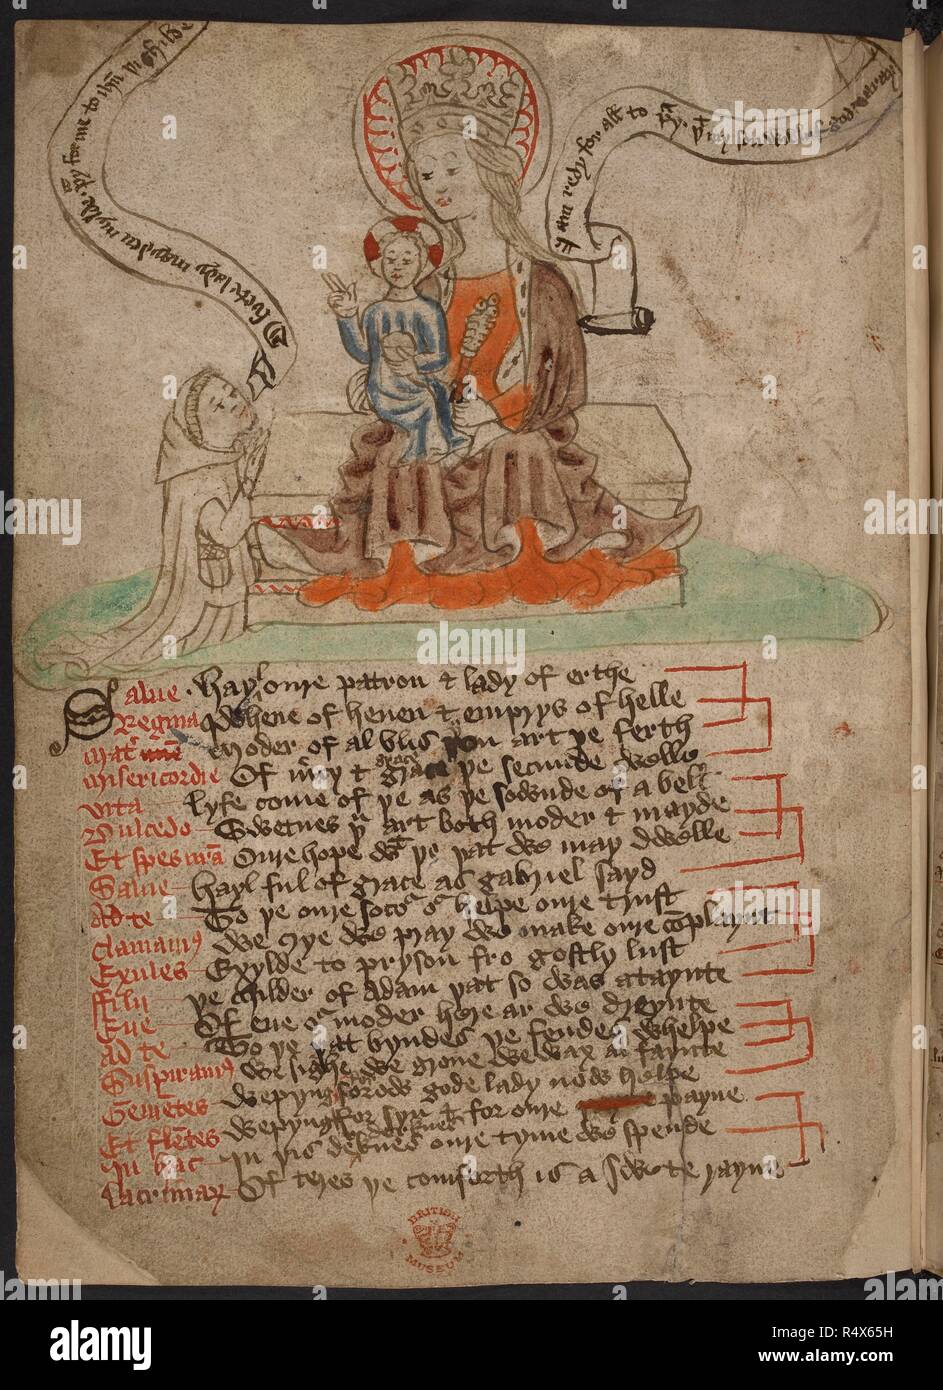 O swete lady mayden mylde · pray for me to ihū þi childe
I am redy for all to pray · þt
Salue · hayl oure patron & lady of erthe
Regina qwhene of heuen & emprys of helle
Mat̄ moder of al blis þou art þe ferth
misericordie Of mcy & grace þe secunde welle
vita lyfe come of þe as þe sownde of a bell
Dulcedo Swetnes þu art both moder & mayde
Et spes nrā Oure hope wt þe þat we may dwelle
Salue hayl ful of grace as gabriel sayd
Ad te To þe oure socor or helpe oure trust
clamamus We crye we pray we make oure cōplaynt
Exules Exylde to pryson fro gostly lust
ffilii þe childer of Adam þat so was ataynte
Eue Of eue or moder here ar we dreynte
ad te To þe þat byndes þe fendes whelpe
Suspiramus We sighe we grone we wax al faynte
Gemētes Wepyng for sorow gode lady now helpe
Et flētes Wepyng for syn & for oure payne
In hac In þis derknes oure tyme we spende
lacrimarꝝ Of teres þe comforth is a swete rayne
BRITISH MUSEUM
alamy
Image ID: R4X65H
www.alamy.com